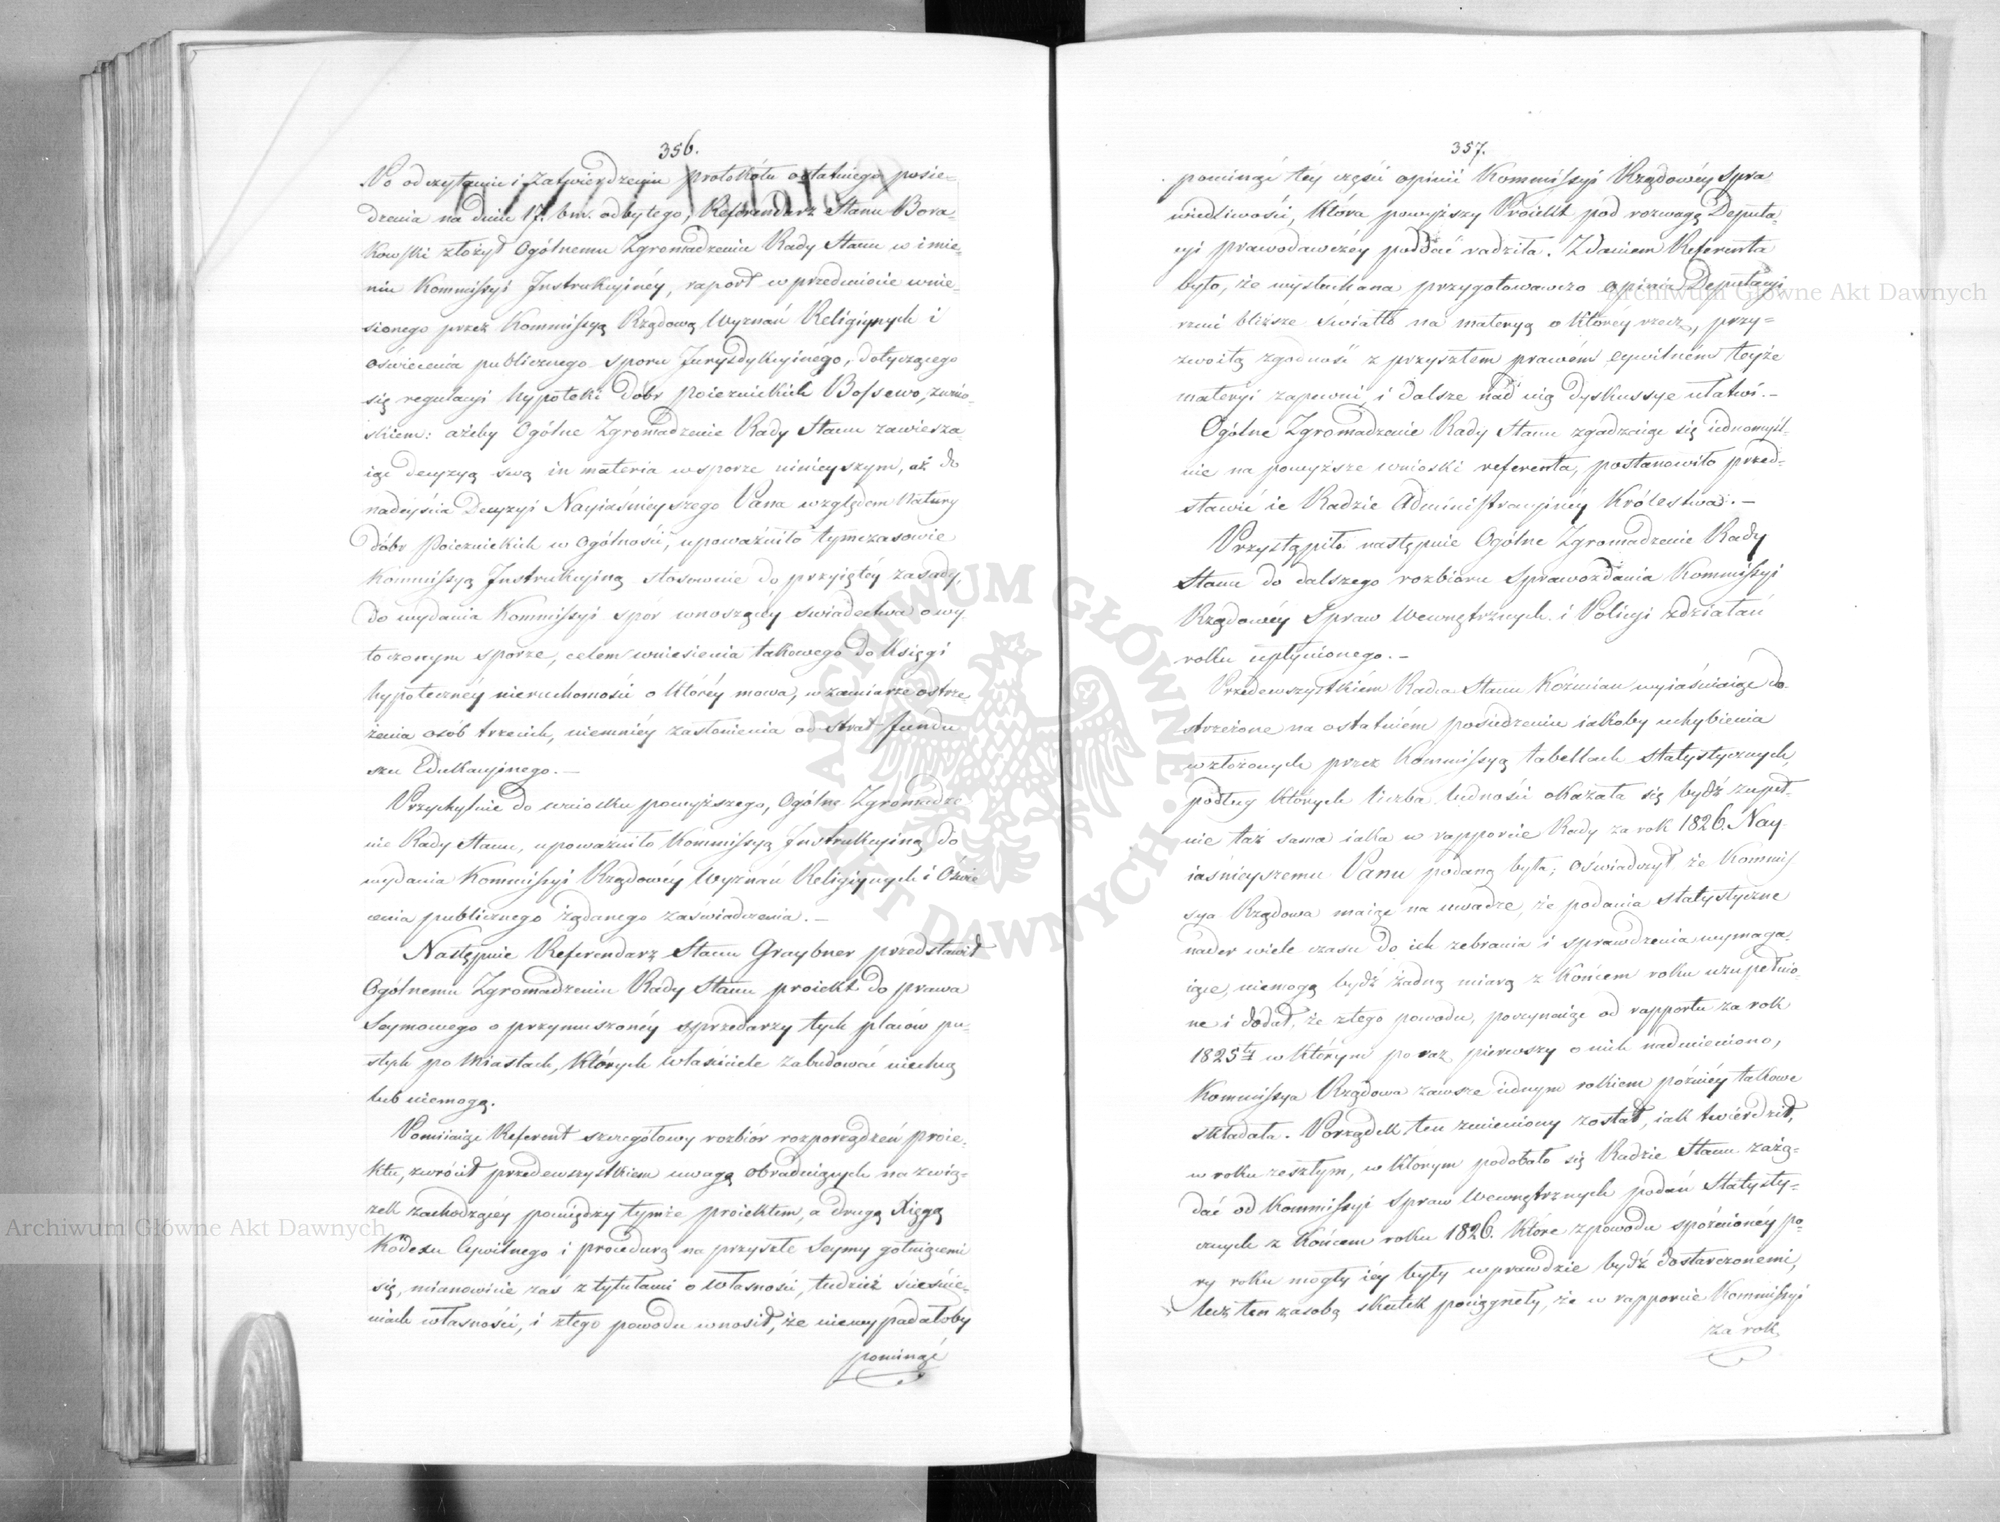 356.
Po odczytaniu i Zatwierdzeniu protokółu ostatniego posie-
dzenia na dniu 17. bm. odbytego, Referendarz Stanu Bora-
kowski złożył Ogólnemu Zgromadzeniu Rady Stanu w imie-
niu Kommissyi Instrukcyinéy, raport w przedmiocie wnie-
sionego przez Kommissyą Rządową Wyznań Religiynych i
oświecenia publicznego sporu Juryzdykcyinego, dotyczącego
się regulacyi hypoteki dóbr Poiezuickich Bossewo, z wnio-
skiem: ażeby Ogólne Zgromadzenie Rady Stanu zawiesza-
iąc decyzyą swą in materia w sporze niniéyszym, aż do
nadéyścia Decyzyi Nayiaśnieyszego Pana względem Natury
dóbr Poiezuickich w Ogólności, upoważniło tymczasowie
Kommissyą Instrukcyiną stosownie do przyiętéy zasady,
do wydania Kommissyi spór wnoszącéy świadectwa o wy-
toczonym sporze, celem wniesienia takowego do Księgi
hypotecznéy nieruchomości o któréy mowa, w zamiarze ostrze-
żenia osób trzecich, niemniéy zasłonienia od strat fundu
szu Edukacyinego. –
Przychylnie do wniosku powyższego, Ogólne Zgromadze
nie Rady Stanu, upoważniło Kommissyą Instrukcyiną do
wydania Kommissyi Rządowéy Wyznań Religiynych i Oświe
cenia publicznego żądanego zaświadczenia. –
Następnie Referendarz Stanu Graybner przedstawił
Ogólnemu Zgromadzeniu Rady Stanu proiekt do prawa
Seymowego o przymuszonéy sprzedarzy tych placów pu-
stych po Miastach, których właściciele zabudować niechcą
lub niemogą.
Pomiiaiąc Referent szczegółowy rozbiór rozporządzeń proie-
ktu, zwrócił przedewszystkiem uwagę obraduiących na zwią-
zek zachodzący pomiędzy tymże proiektem, a drugą Xięgą
Kodexu Cywilnego i procedurą na przyszłe Seymy gotuiącemi
się, mianowicie zaś z tytułami o własności, tudzież ścieśnie-
niach własności, i z tego powodu wnosił, że niewypadałoby
pominąć
357.
pominąć téy części opinii Kommissyi Rządowéy Spra
wiedliwości, która powyższy Proiekt pod rozwagę Deputa-
cyi prawodawczéy poddać radziła. Zdaniem Referenta
było, że wysłuchana przygotowawczo opinia Deputacyi
rzuci bliższe światło na materyą o któréy rzecz, przy-
zwoitą zgodność z przyszłem prawem cywilném teyże
materyi zapewni, i dalsze nad nią dyskussye ułatwi. –
Ogólne Zgromadzenie Rady Stanu zgadzaiąc się iednomyśl-
nie na powyższe wnioski referenta, postanowiło przed-
stawić ie Radzie Administracyinéy Królestwa. –
Przystąpiło następnie Ogólne Zgromadzenie Rady
Stanu do dalszego rozbioru Sprawozdania Kommissyi
Rządowéy Spraw Wewnętrznych i Policyi z działań
roku upłynionego. –
Przedewszystkiém Radca Stanu Koźmian wyiaśniaiąc do-
strzeżone na ostatniém posiedzeniu iakoby uchybienia
w złożonych przez Kommissyą tabellach statystycznych,
podług których liczba ludności okazała się bydź zupeł-
nie taż sama iaka w rapporcie Rady za rok 1826. Nay-
iaśnieyszemu Panu podaną była; oświadczył że Kommis
sya Rządowa maiąc na uwadze, że podania statystyczne
nader wiele czasu do ich zebrania i sprawdzenia wymaga-
iące, niemogą bydź żadną miarą z końcem roku uzupełnio-
ne i dodał, że z tego powodu, poczynaiąc od rapportu za rok
1825ty w którym po raz pierwszy o nich nadmieniono,
Kommissya Rządowa zawsze iednym rokiem poźniéy takowe
składała. Porządek ten zmieniony został, iak twierdził,
w roku zeszłym, w którym podobało się Radzie Stanu zażą-
dać od Kommissyi Spraw Wewnętrznych podań Statysty-
cznych z końcem roku 1826. które z powodu spóźnionéy po-
ry roku mogły iéy były wprawdzie bydź dostarczonemi,
lecz ten za sobą skutek pociągnęły, że w rapporcie Kommissyi
za rok